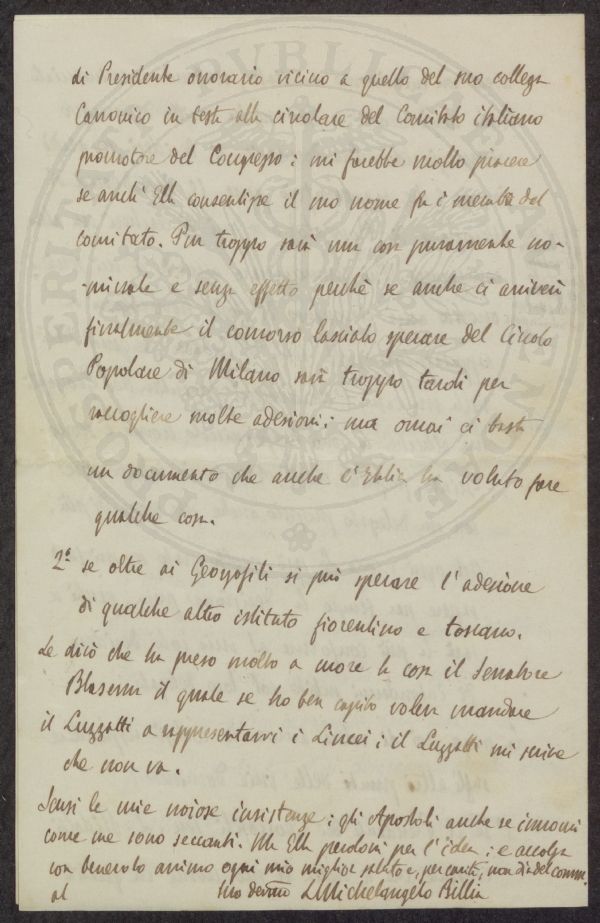 di Presidente onorario vicino a quello del suo collega
Canonico in testa alla circolare del Comitato italiano
promotore del Congresso: mi farebbe molto piacere
se anch' Ella consentisse il suo nome fra i membri del
comitato. Pur troppo sarà una cosa puramente no-
-minale e senza effetto perchè se anche ci arriverà
finalmente il concorso lasciato sperare del Circolo
Popolare di Milano sarà troppo tardi per
raccogliere molte adesioni; ma omai ci basta
un documento che anche l'Italia ha voluto fare
qualche cosa.
2º se oltre ai Georgofili si può sperare l'adesione
di qualche altro istituto fiorentino e toscano.
Le dirò che ha preso molto a cuore la cosa il Senatore
Blaserna il quale se ho ben capito voleva mandare
il Luzzatti a rappresentarvi i Lincei; il Luzzatti mi scrive
che non va.
Scusi le mie noiose insistenze; gli Apostoli anche se
come me sono seccanti. Ma Ella perdoni per l'idea; e accolga
con benevolo animo ogni mio miglior saluto e, per carità, non dia del comm.
al suo devmo L Michelangelo Billia
PVBLICAE PROSPERITATIS